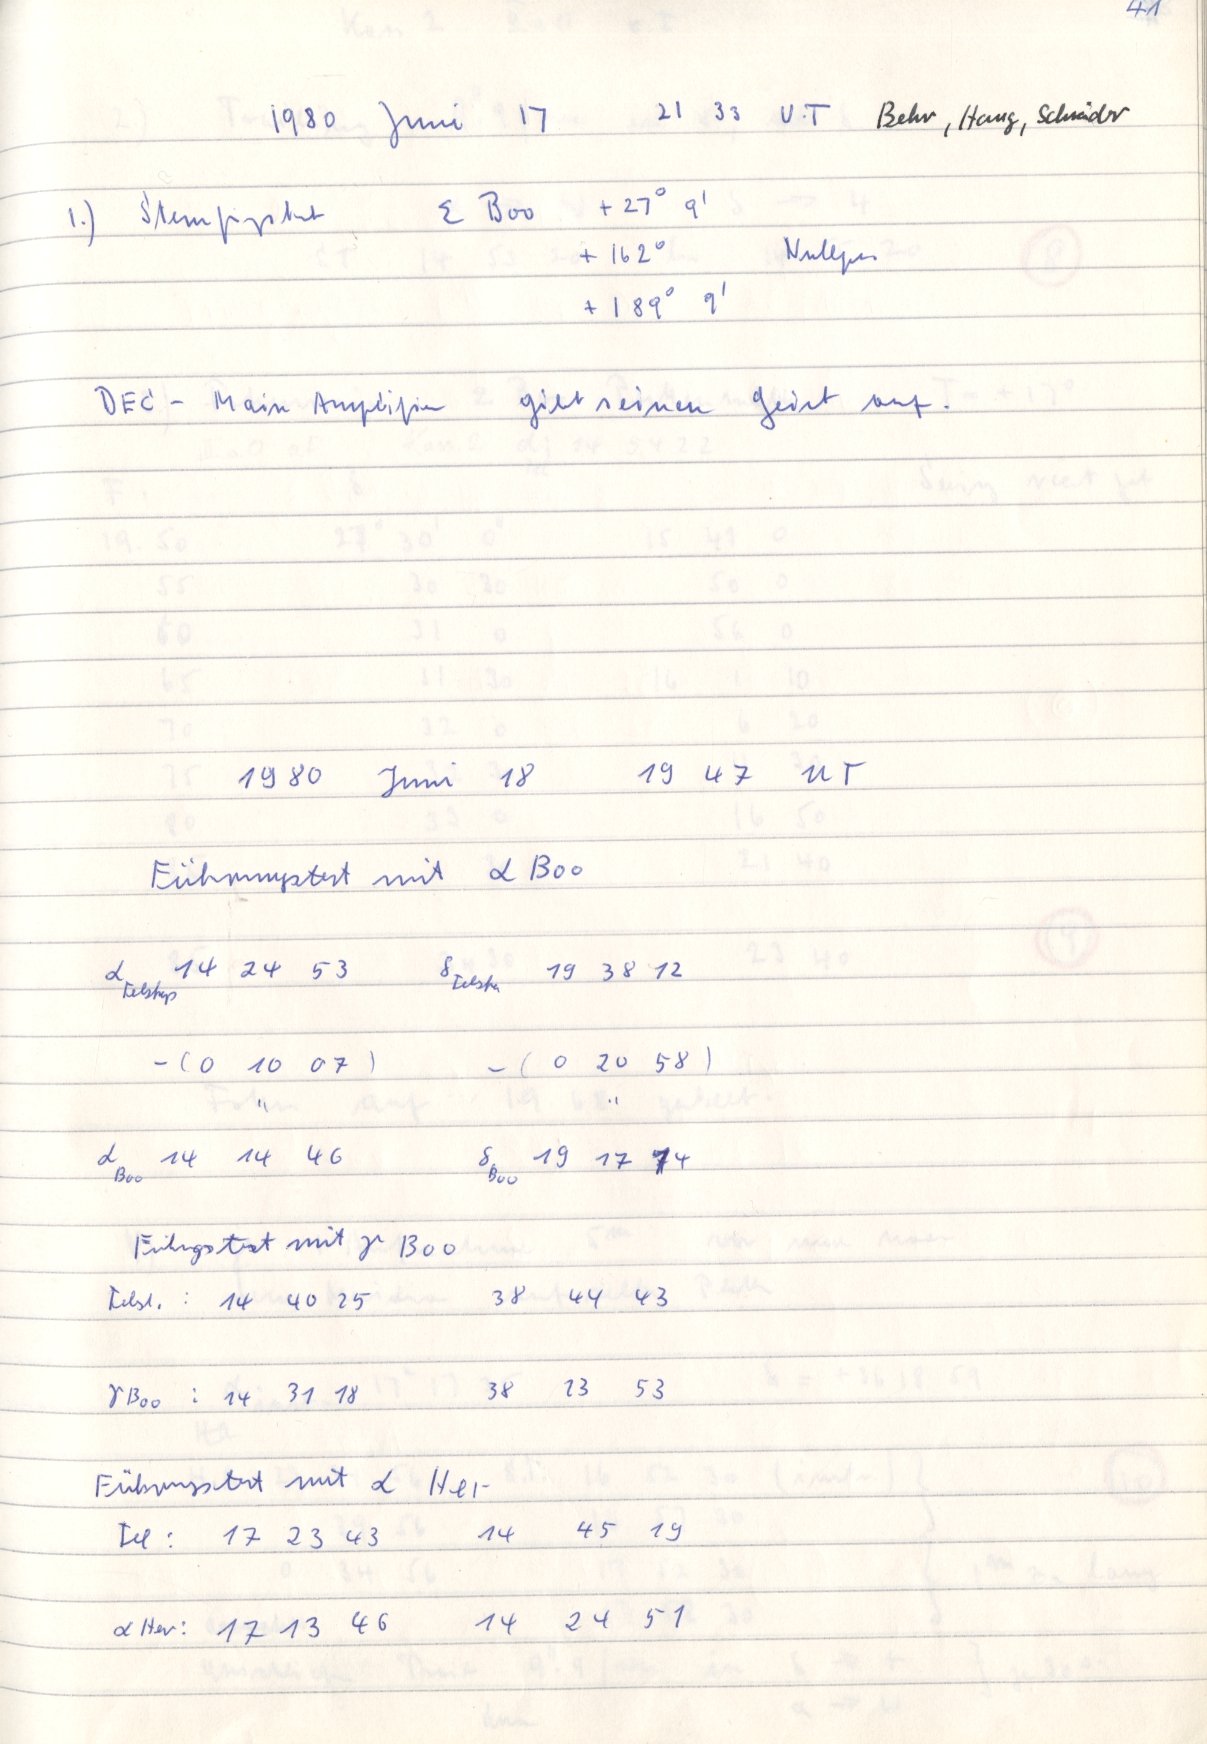 41
1980 Juni 17 21 33 U.T Behr, Haug, Schröder
1.) Σ Boo + 27° 9'
+ 162°
+ 189° 9'
DEC - Main Amplifier gibt seinen Geist auf.
1980 Juni 18 19 47 UT
Führungstest mit α Boo
α Teleskop 14 24 53 δ Teleskop 19 38 12
- ( 0 10 07 ) - ( 0 20 58 )
" "
α Boo 14 14 46 δ Boo 19 17 14
Führgstest mit γ Boo
Telsk. : 14 40 25 38 44 43
γ Boo : 14 31 18 38 23 53
Führungstest mit α Her
Tel : 17 23 43 14 45 19
α Her : 17 13 46 14 24 51